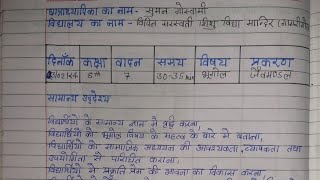 छात्राध्यापिका का नाम- सुमन गोस्वामी
विद्यालय का नाम - विपिन सरस्वती शिशु विद्या मन्दिर
दिनाँक कक्षा वादन समय विषय प्रकरण
8th 7 30-35 भूगोल जैवमण्डल
सामान्य उद्देश्य
विद्यार्थियों के सामान्य ज्ञान में वृद्धि करना,
विद्यार्थियों को भूगोल विषय के महत्व के बारे में बताना,
विद्यार्थियों को सामाजिक अध्ययन की आवश्यकता, व्यापकता तथा
उपयोगिता से परिचित कराना।
विद्यार्थियों में प्रकृति प्रेम की भावना का विकास कराना।